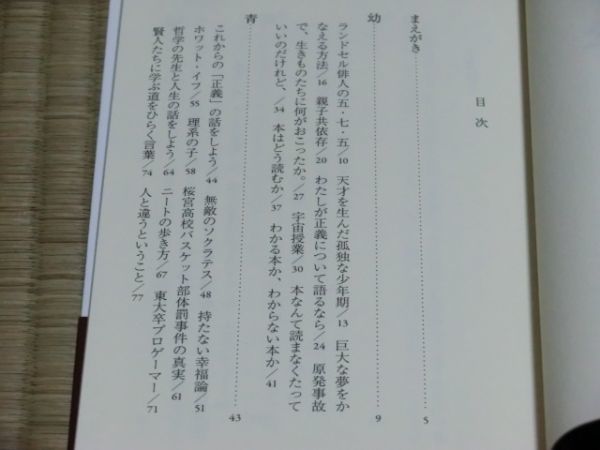 目次
まえがき……………5
幼……………9
ランドセル俳人の五・七・五/10 天才を生んだ孤独な少年期/13 巨大な夢をか
なえる方法/16 親子共依存/20 わたしが正義について語るなら/24 原発事故
で、生きものたちに何がおこったか。/27 宇宙授業/30 本なんて読まなくたって
いいのだけれど、/34 本はどう読むか/37 わかる本か、わからない本か/41
青……………43
これからの「正義」の話をしよう/44 無敵のソクラテス/48 持たない幸福論/51
ホワット・イフ/55 理系の子/58 桜宮高校バスケット部体罰事件の真実/61
哲学の先生と人生の話をしよう/64 ニートの歩き方/67 東大卒プロゲーマー/71
賢人たちに学ぶ道をひらく言葉/74 人と違うということ/77